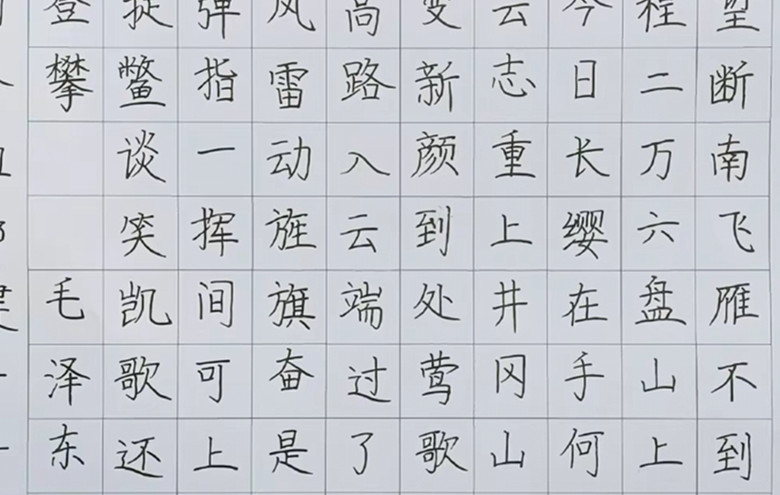 望断南飞雁不到
程二万六盘山上
今日长缨在手何
云志重上井冈山
变新颜到处莺歌
高路入云端过了
风雷动旌旗奋是
弹指一挥间可上
捉鳖谈笑凯歌还
登攀 毛泽东